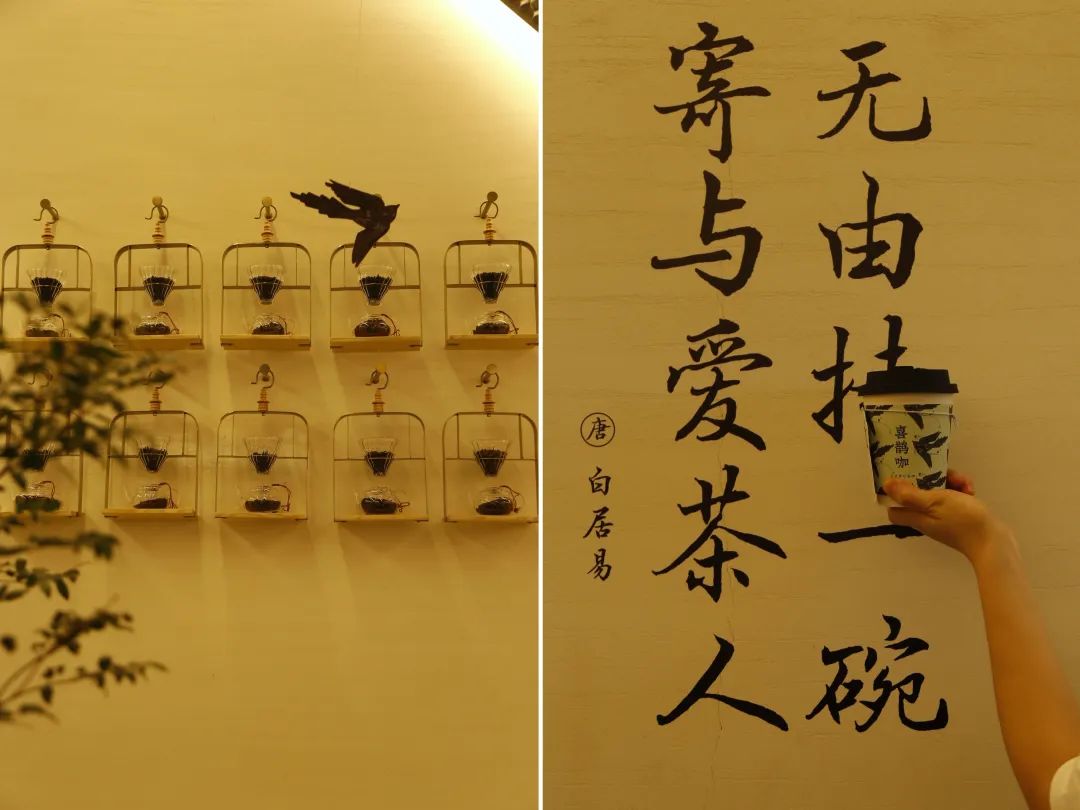 无由持一碗
寄与爱茶人
唐 白居易
喜鹊咖